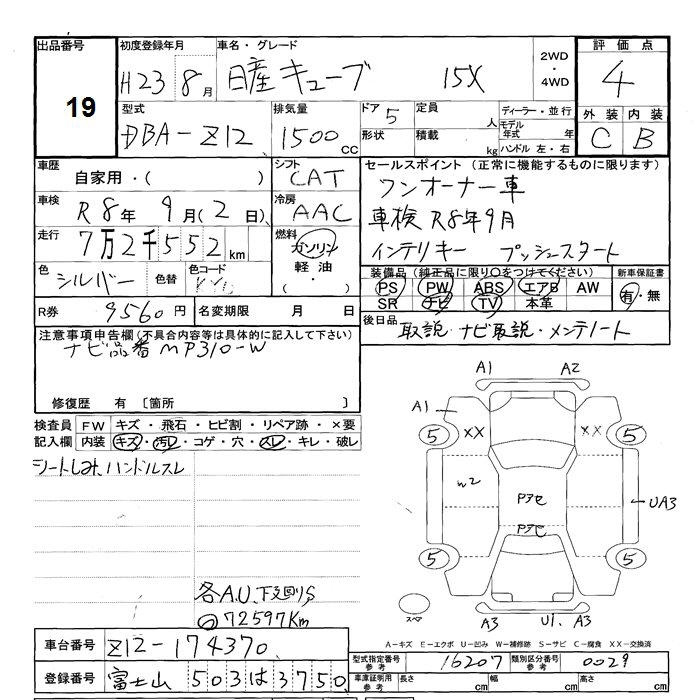 出品番号 初度登録年月 車名・グレード 2WD・4WD 評価点
19 H23 8月 日産 キューブ 15X 4
型式 排気量 ドア 5 定員 人 ディーラー・並行 外装 内装
DBA-Z12 1500cc 形状 積載 kg モデル年式 年 C B
ハンドル 左・右
車歴 シフト セールスポイント (正常に機能するものに限ります)
自家用・( ) CAT ワンオーナー車
車検 冷房 車検 R8年9月
R8年 9月(2日) AAC インテリキー プッシュスタート
走行 7万2千552km 燃料 ガソリン 軽油 (・)
色 シルバー 色替 色コード
装備品 (純正品に限り○をつけてください) 新車保証書
PS PW ABS エアB AW 有・無
SR ナビ TV 本革
R券 9560円 名変期限 月 日
後日品 取説・ナビ取説・メンテノート
注意事項申告欄(不具合内容等は具体的に記入して下さい)
ナビ品番 MP310-W
修復歴 有 [箇所 ]
検査員記入欄 FW キズ・飛石・ヒビ割・リペア跡・×要
内装 キズ・汚レ・コゲ・穴・スレ・キレ・破レ
シートしみ、ハンドルスレ
A1 A2
A1
XX XX
5 5
W2 Pアセ UA3
Pアセ
5 5
スペア
A3 U1、A3
各A.U、下廻りS
72597Km
A-キズ E-エクボ U-凹み W-補修跡 S-サビ C-腐食 XX-交換済
車台番号 Z12-174370
型式指定番号 参考 16207 類別区分番号 参考 0029
登録番号 富士山 503 は 3750
車庫証明用 参考 長さ cm 幅 cm 高さ cm